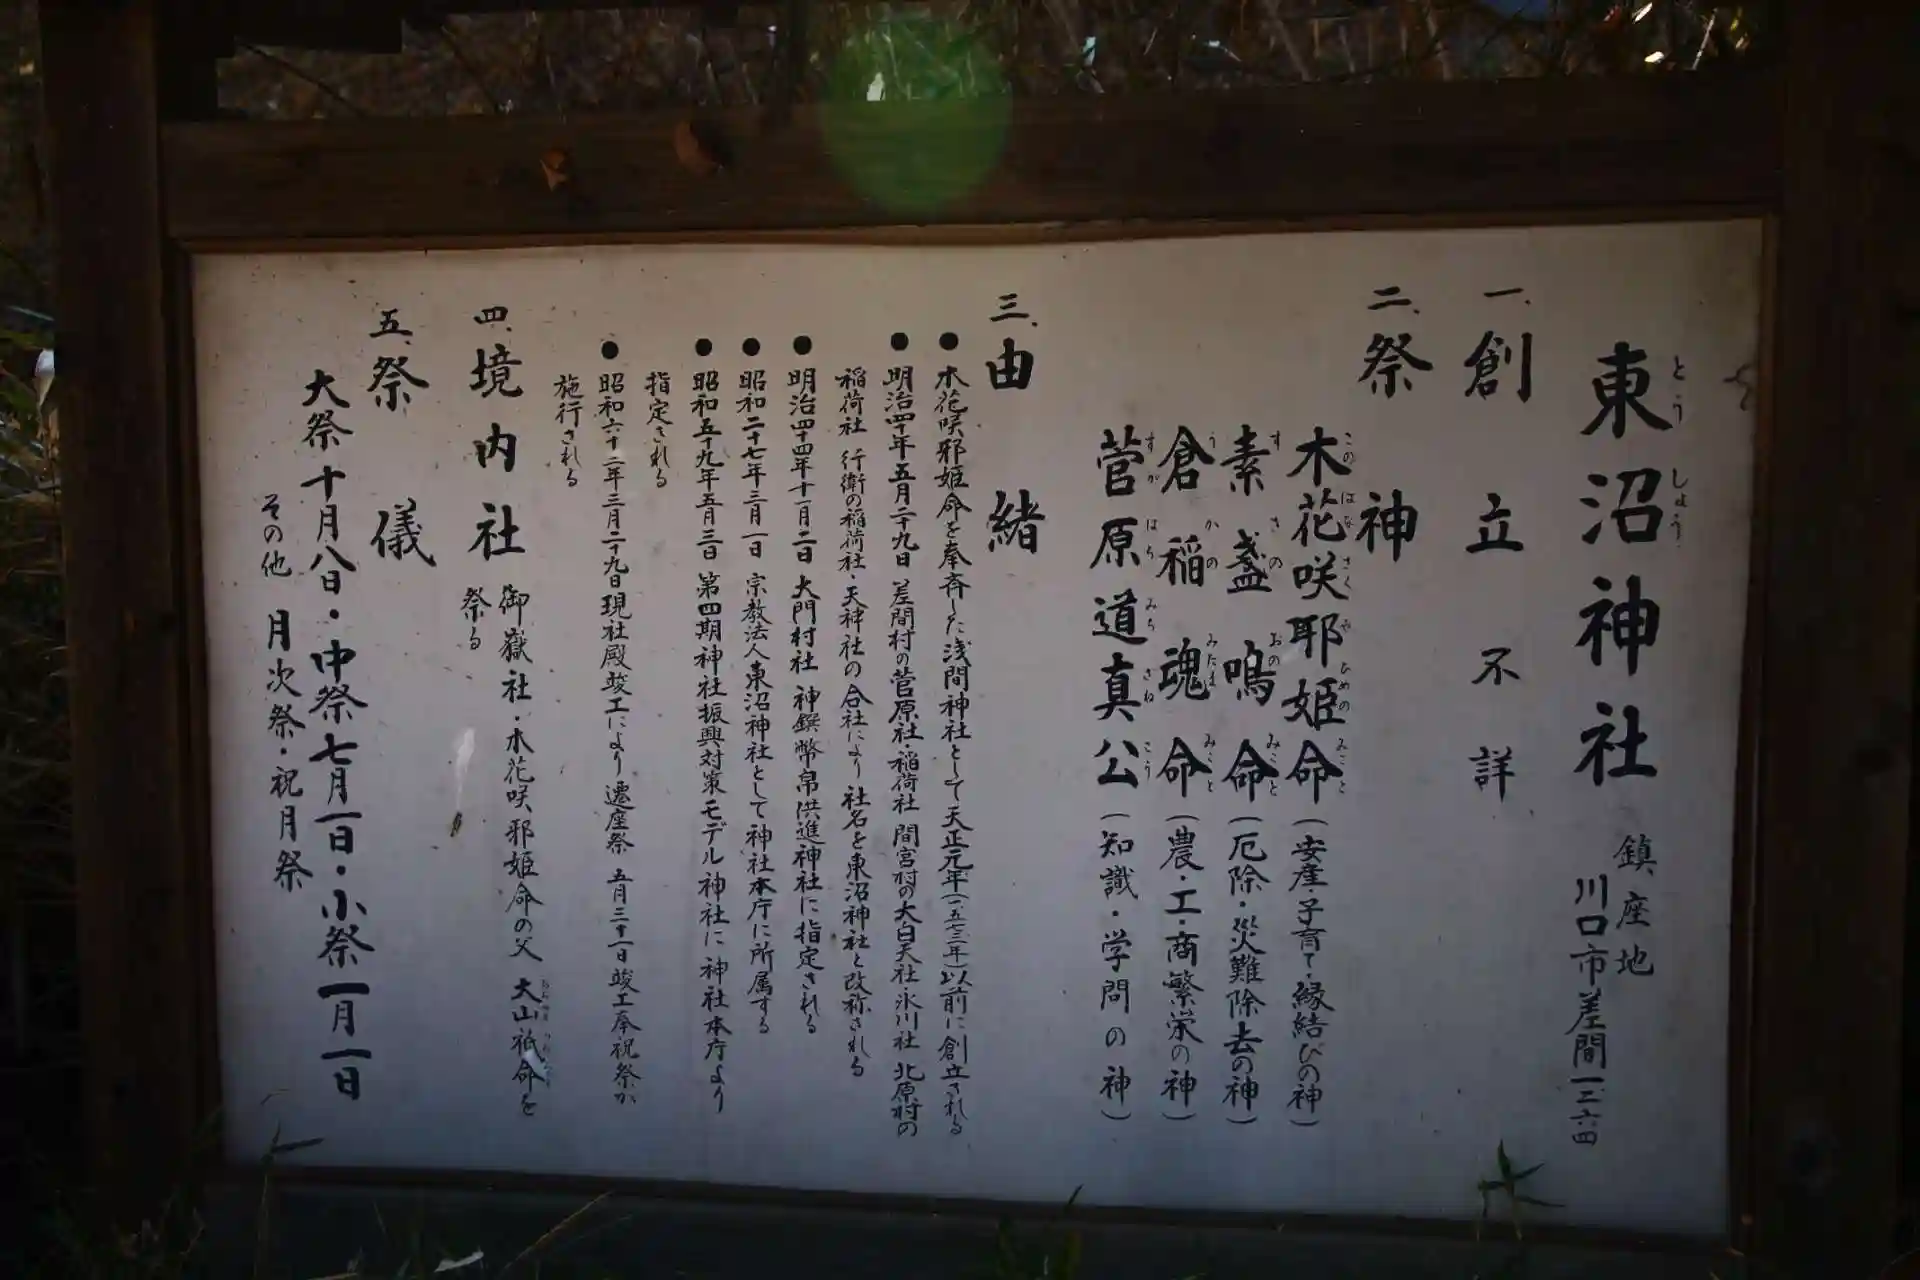 東沼神社
とうしょう
鎮座地
川口市差間一-三-六四
一、創立不詳
二、祭神
木花咲耶姫命(安産・子育て・縁結びの神)
このはなさくやひめのみこと
素盞嗚命(厄除・災難除去の神)
すさのおのみこと
倉稲魂命(農・工・商繁栄の神)
うかのみたまみこと
菅原道真公(知識・学問の神)
すがはらみちざねこう
三、由緒
●木花咲邪姫命を奉斉した浅間神社として天正元年(一五七三年)以前に創立される
●明治四十年五月二十九日 差間村の菅原社・稲荷社 間宮村の大白天社・氷川社 北原村の
稲荷社 行衛の稲荷社・天神社の合社により社名を東沼神社と改称される
●明治四十四年十一月二日 大門村社 神饌幣帛供進神社に指定される
●昭和二十七年三月一日 宗教法人東沼神社として神社本庁に所属する
●昭和五十九年五月三日 第四期神社振興対策モデル神社に神社本庁より
指定される
●昭和六十二年三月二十九日現社殿竣工により遷座祭 五月三十一日竣工奉祝祭が
施行される
四、境内社
御嶽社・木花咲邪姫命の父 大山祇命を
祭る
五、祭儀
大祭十月八日・中祭七月一日・小祭一月一日
その他 月次祭・祝月祭